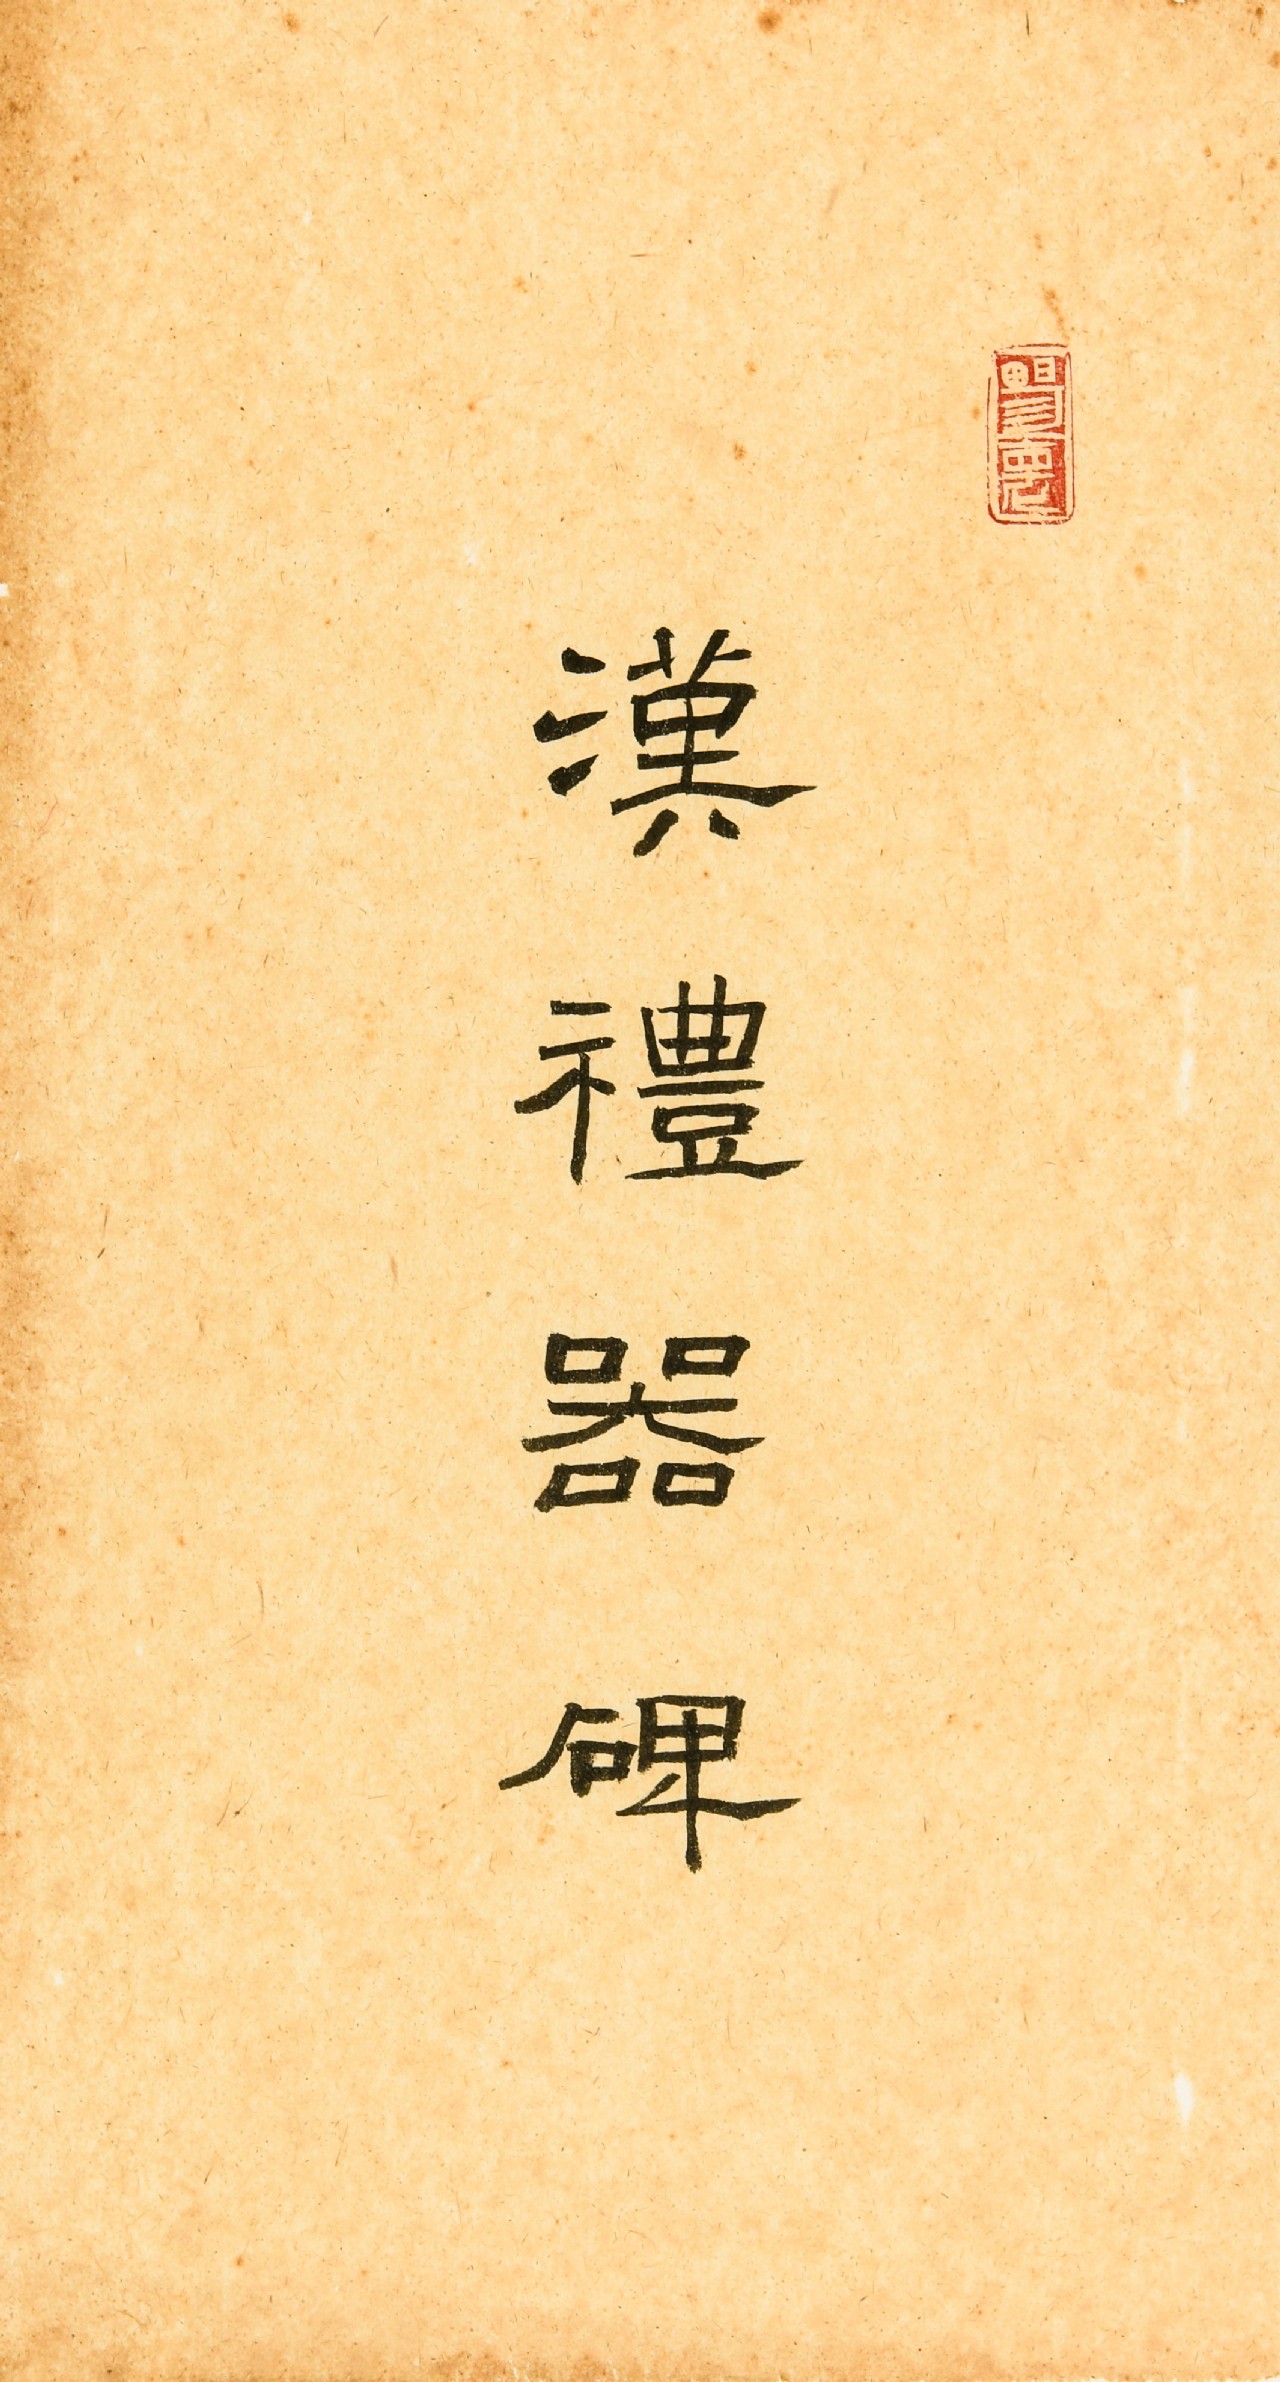 漢禮器碑